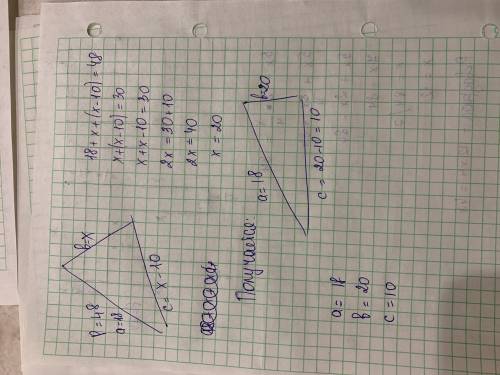 P=48
a=18
b=x
c=x-10
18+x+(x-10)=48
x+(x-10)=30
x+x-10=30
2x=30+10
2x=40
x=20
Получается:
a=18
b=20
c=20-10=10
a=18
b=20
c=10